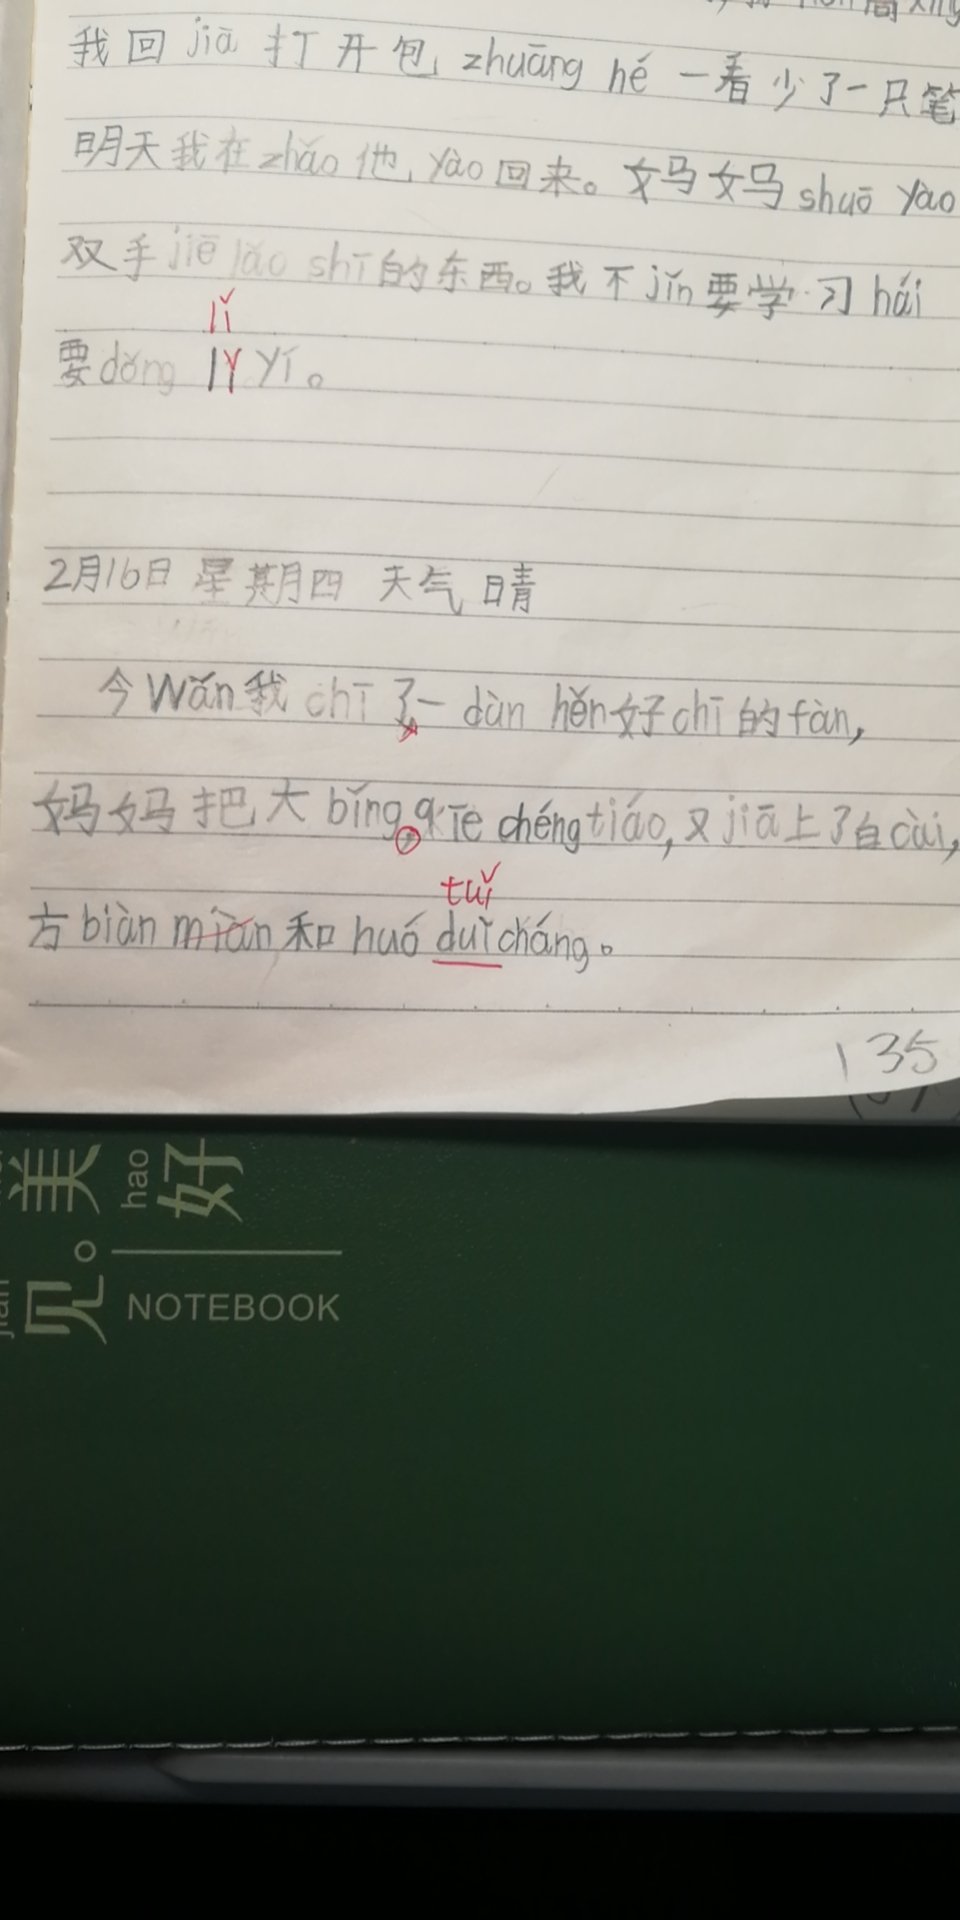 我回jiā打开包zhuāng hé一看少了一只笔
明天我在zhǎo他yào回来。妈妈shuō yào
双手jiē lǎo shī的东西。我不jǐn要学习hái
lǐ
要dǒng lǐ yí。
2月16日 星期四 天气晴
今Wǎn我chī了一dùn hěn好chī的fàn,
妈妈把大bǐng qiē chéng tiáo,又jiā上了白cài,
tuǐ
方biàn miàn和huó duǐ cháng。
135
美 hao 好
见。
NOTEBOOK